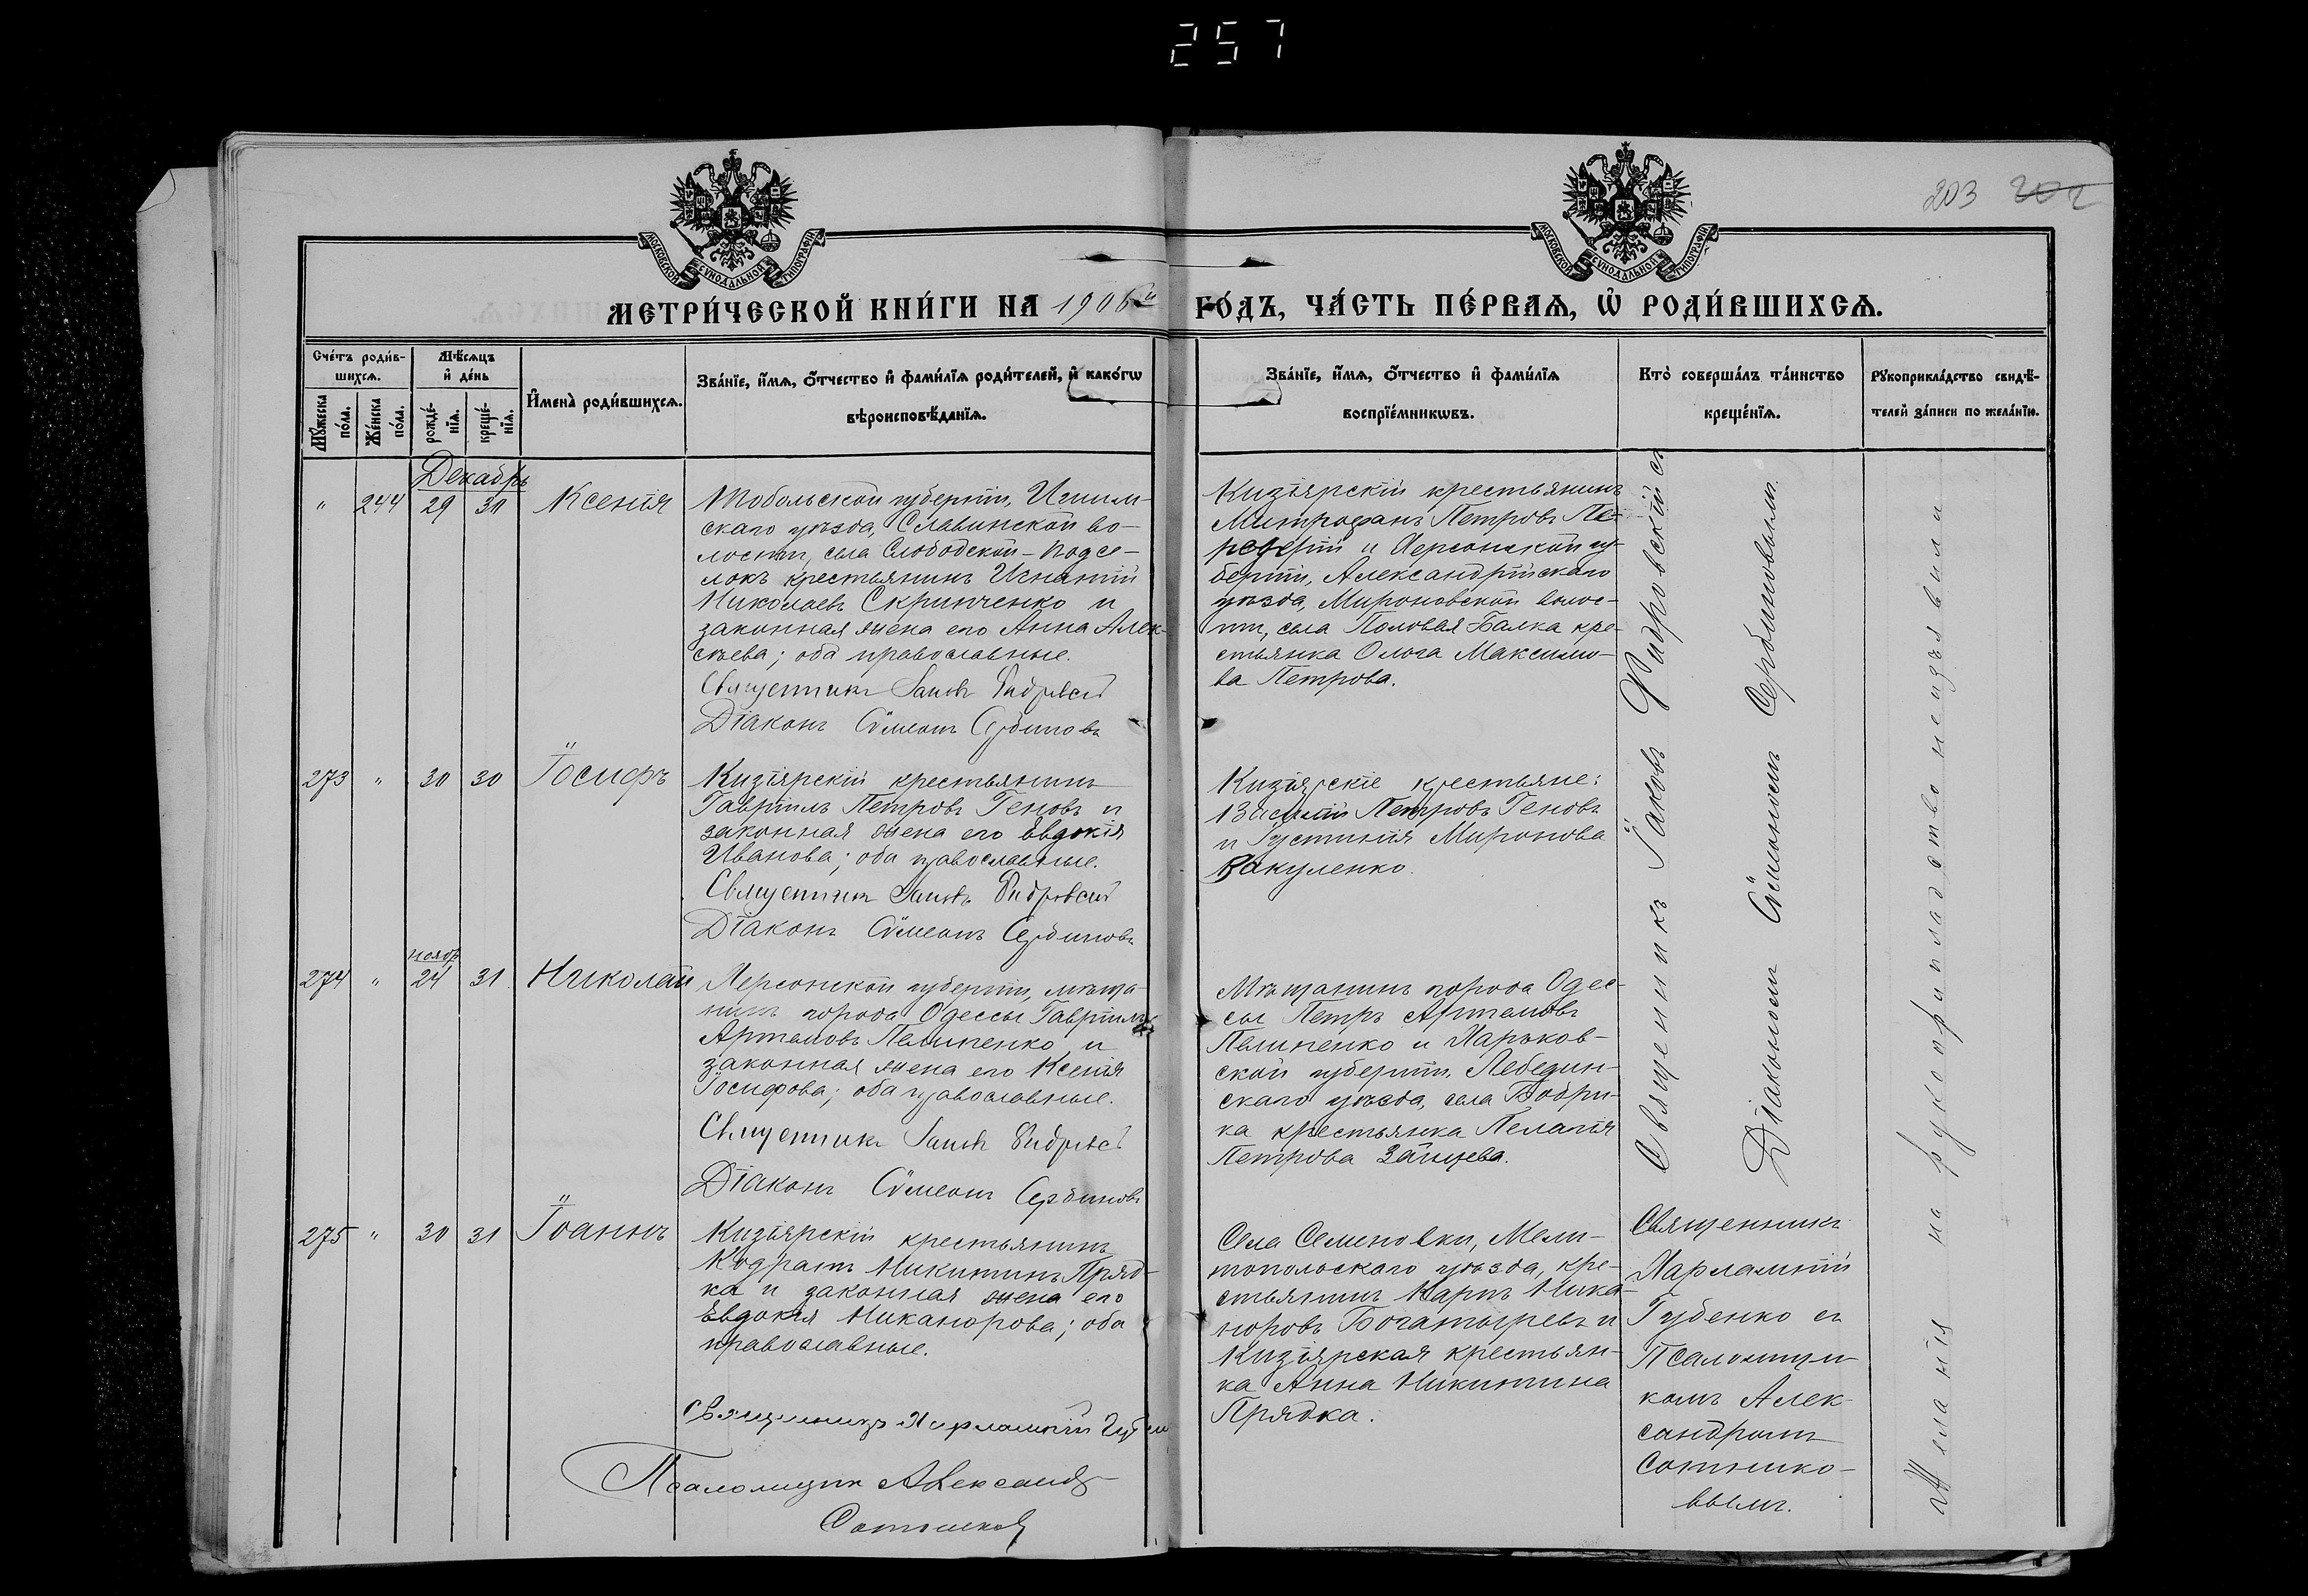 257
203 202
МОСКОВСКОЙ СѴНОДАЛЬНОЙ ТИПОГРАФІИ
МОСКОВСКОЙ СѴНОДАЛЬНОЙ ТИПОГРАФІИ
МЕТРИ́ЧЕСКОЙ КНИ́ГИ НА 1906й ГО́ДЪ, ЧА́СТЬ ПЕ́РВАѦ, Ѡ҆ РОДИ́ВШИХСѦ.
Сче́тъ роди́в-
шихсѧ.
Мѣ́сѧцъ
и҆ де́нь
Мꙋ́жеска по́ла.
Же́нска по́ла.
рожде́-
нїѧ.
креще́-
нїѧ.
И҆мена̀ роди́вшихсѧ.
Зва́нїе, и҆́мѧ, ѻ҆́тчество и҆ фами́лїѧ роди́телей, и҆ како́гѡ
вѣроисповѣ́данїѧ.
Зва́нїе, и҆́мѧ, ѻ҆́тчество и҆ фами́лїѧ
воспрїе́мникѡвъ.
Кто̀ соверша́лъ та́инство
креще́нїѧ.
Рꙋкоприкла́дство свидѣ́-
телей за́писи по жела́нїю.
Декабрь
" 244 29 31 Ксенія
Тобольской губерніи, Ишим-
скаго уѣзда, Славинской во-
лости, села Слободской-Подсе-
локъ крестьянинъ Игнатій
Николаевъ Скрипченко и
законная жена его Анна Алек-
сѣева; оба православные.
Священникъ Іаковъ Фидровскій
Діаконъ Сѵмеонъ Сербиновъ
Кизіярскій крестьянинъ
Митрофанъ Петровъ Пе-
и Херсонской гу-
берніи, Александрійскаго
уѣзда, Мироновской волос-
ти, села Половая Балка кре-
стьянка Ольга Максимо-
ва Петрова.
273 " 30 30 Іосифъ
Кизіярскій крестьянинъ
Гавріилъ Петровъ Геновъ и
законная жена его Евдокія
Иванова; оба православные.
Священникъ Іаковъ Фидровскій
Діаконъ Сѵмеонъ Сербиновъ
Кизіярскіе крестьяне:
Василій Петровъ Геновъ
и Іустинія Миронова
Вакуленко.
нояб
274 " 24 31 Николай
Херсонской губерніи, мѣща-
нинъ города Одессы Гавріилъ
Артемовъ Пелипенко и
законная жена его Ксенія
Іосифова; оба православные.
Священникъ Іаковъ Фидровскій
Діаконъ Сѵмеонъ Сербиновъ
Мѣщанинъ города Одес-
сы Петръ Артемовъ
Пелипенко и Харьков-
ской губерніи, Лебедин-
скаго уѣзда, села Бобри-
ка крестьянка Пелагія
Петрова Зайцева.
Священникъ Іаковъ Фидровскій съ
Діакономъ Сѵмеономъ Сербиновымъ.
275 " 30 31 Іоаннъ
Кизіярскій крестьянинъ
Кодратъ Никитинъ Пряд-
ка и законная жена его
Евдокія Никанорова; оба
православные.
Священникъ Харлампій Губенко
Псаломщикъ Александръ
Сотниковъ
Села Семеновки, Мели-
топольскаго уѣзда, кре-
стьянинъ Карпъ Ника-
норовъ Богатыревъ и
Кизіярская крестьян-
ка Анна Никитина
Прядка.
Священникъ
Харлампій
Губенко съ
Псаломщи-
комъ Алек-
сандромъ
Сотнико-
вымъ.
Желанія на рукоприкладство не изъявили